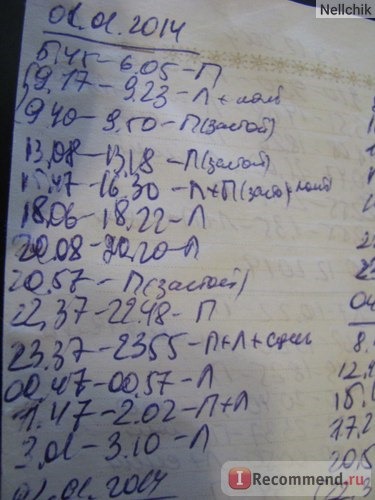 Nellchik
01.01.2014
5.45-6.05-П
9.17-9.23-Л+
9.40-9.50-П(застой)
13.08-13.18-П(застой)
15.47-16.30-Л+П(
18.06-18.22-Л
20.08-20.20-Л
20.57-П(застой)
22.37-22.48-П
23.37-23.55-П+Л+
00.47-00.57-Л
1.47-2.02-П+Л
3.01-3.10-Л
.01.2014
04
8.
12.
15.
17.2
20.5
22.3
I RECOMMEND.RU